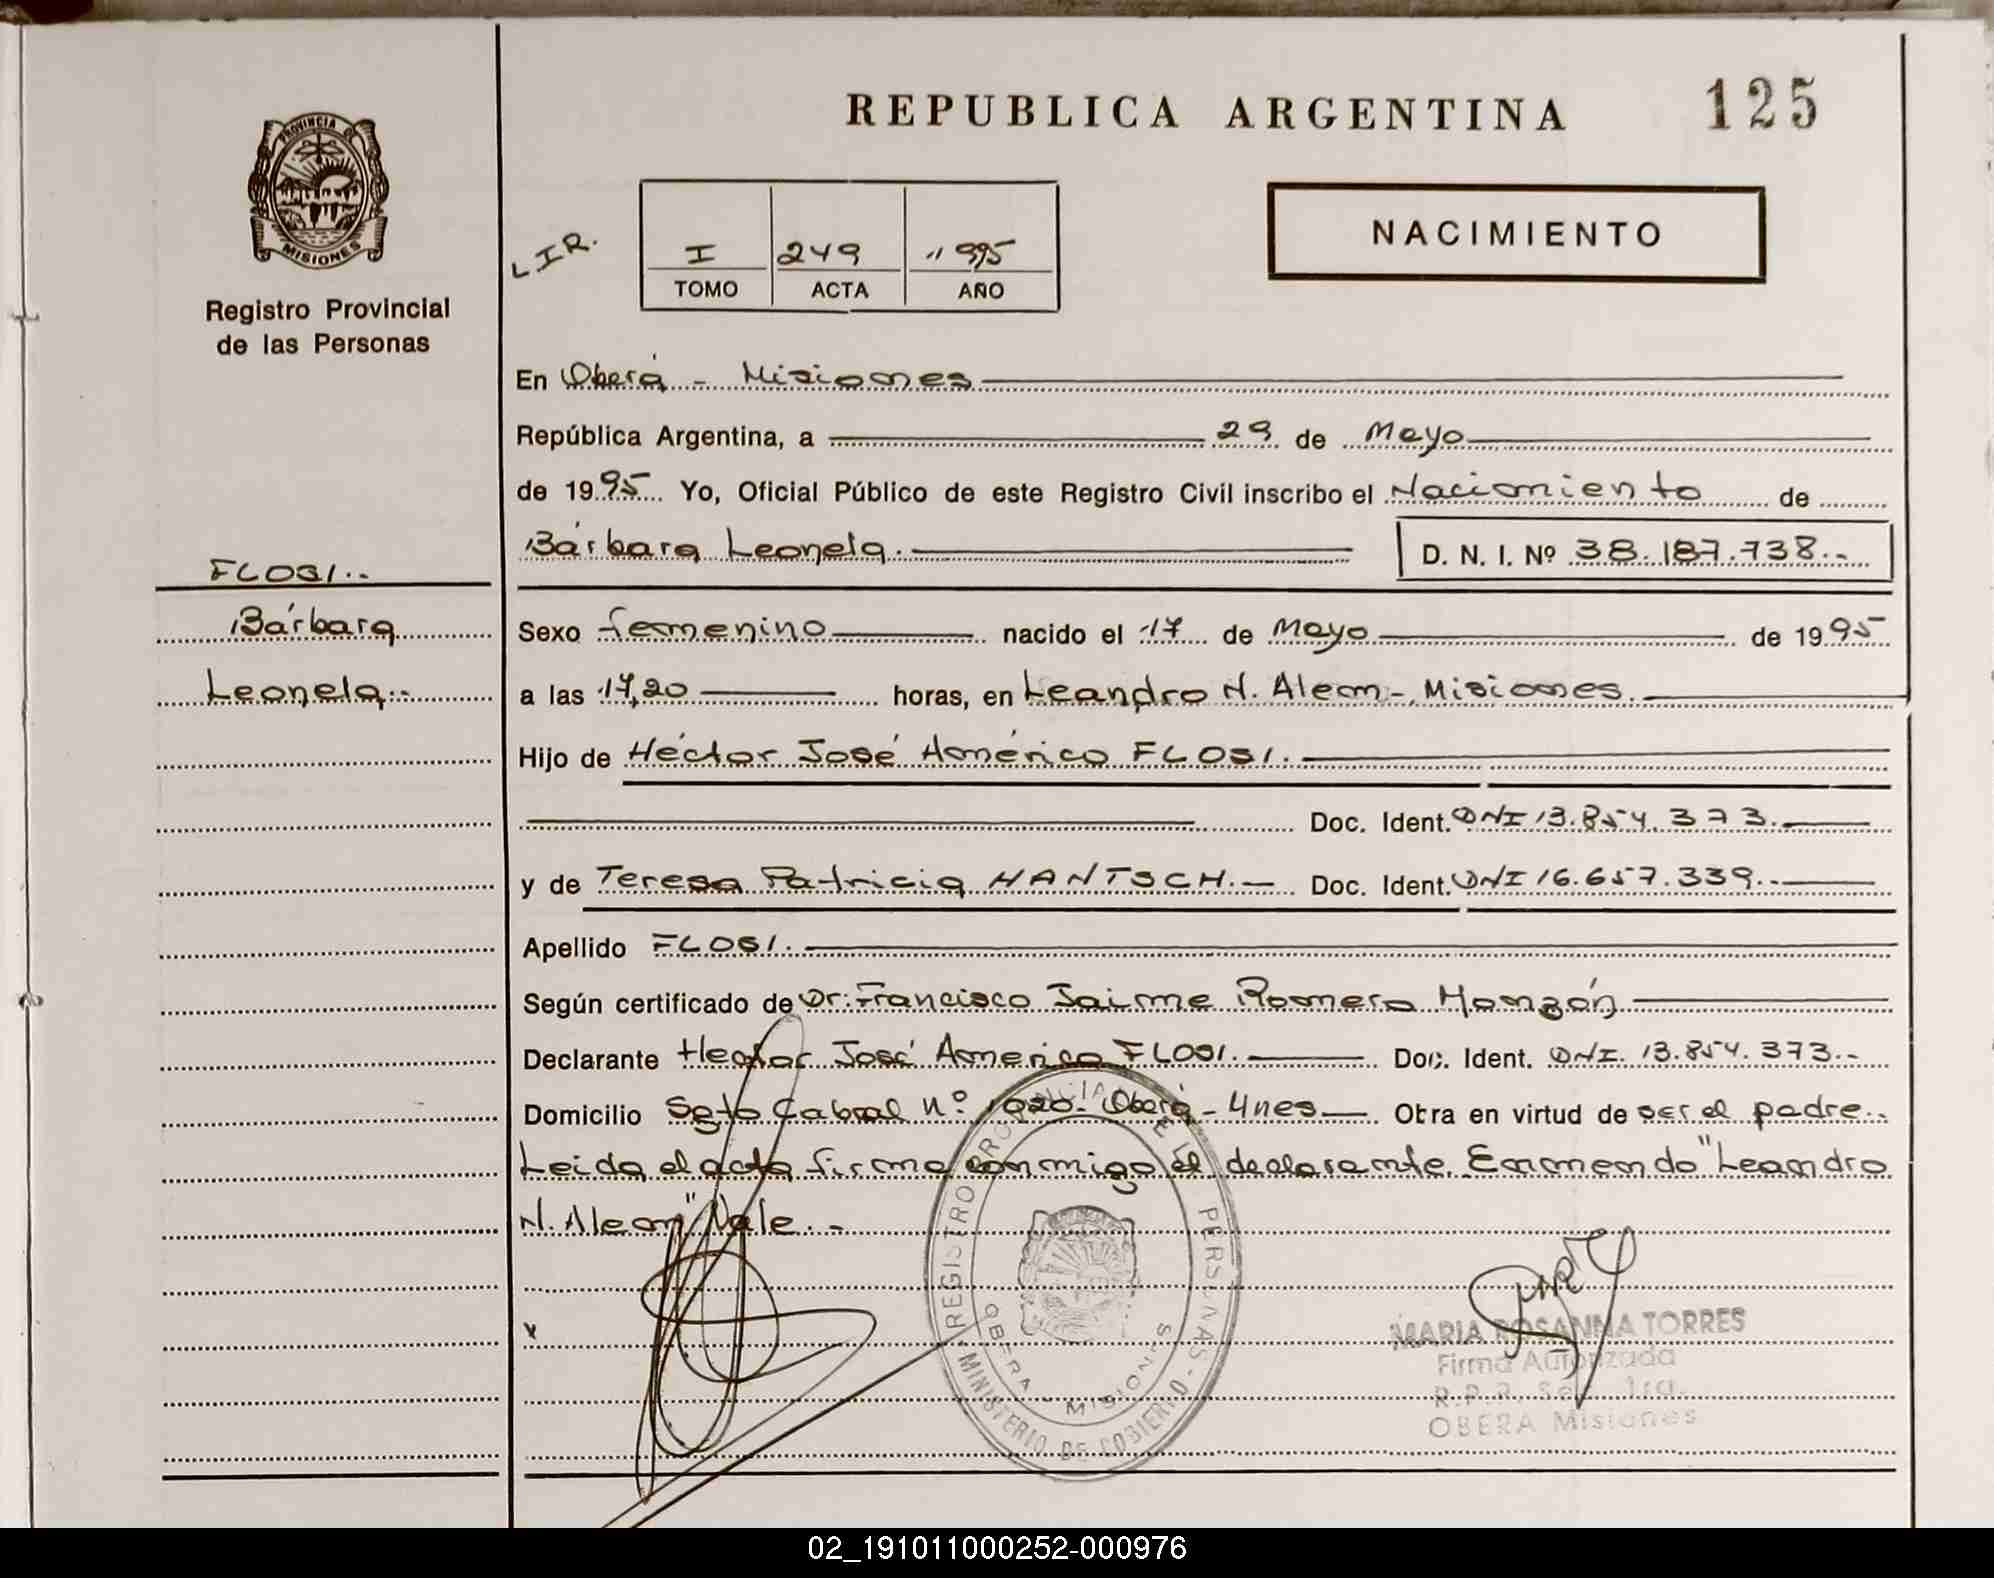 REPUBLICA ARGENTINA 125
PROVINCIA DE
MISIONES
Registro Provincial
de las Personas
L.I.R.
I 249 " 995
TOMO ACTA AÑO
NACIMIENTO
En Oberá - Misiones
República Argentina, a 29 de Mayo
de 1995 Yo, Oficial Público de este Registro Civil inscribo el Nacimiento de
Bárbara Leonela. D. N. I. Nº 38.187.738.-
FLOSI.-
Bárbara
Leonela.-
Sexo femenino nacido el 17 de Mayo de 1995
a las 17,20 horas, en Leandro N. Alem - Misiones.
Hijo de Héctor José Américo FLOSI.
Doc. Ident. DNI 13.854.373.
y de Teresa Patricia HANTSCH. - Doc. Ident. DNI 16.657.339.-
Apellido FLOSI.
Según certificado de Dr. Francisco Jaime Romero Monzón
Declarante Hector José Americo FLOSI. Doc. Ident. DNI. 13.854.373.-
Domicilio Sgto Cabral Nº 1020 - Oberá - Mnes Obra en virtud de ser el padre.-
Leida el acta firma conmigo el declarante. Enmendo "Leandro
N. Alem" Vale. -
x
REGISTRO PROVINCIAL DE L PERSONAS - MINISTERIO DE GOBIERNO -
OBERA - MISIONES
MARIA ROSANNA TORRES
Firma Autorizada
R.P.P. Sec. 1ra.
OBERA Misiones
02_191011000252-000976